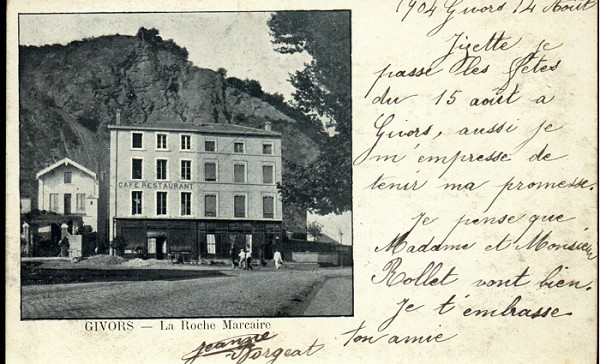 1904 Givors 14 Août
Jizette je
passe les fêtes
du 15 août a
Givors, aussi je
m'empresse de
tenir ma promesse.
Je pense que
Madame et Monsieur
Rollet vont bien.
Je t'embrasse
ton amie
Jeanne
CAFÉ RESTAURANT
GIVORS — La Roche Marcaire